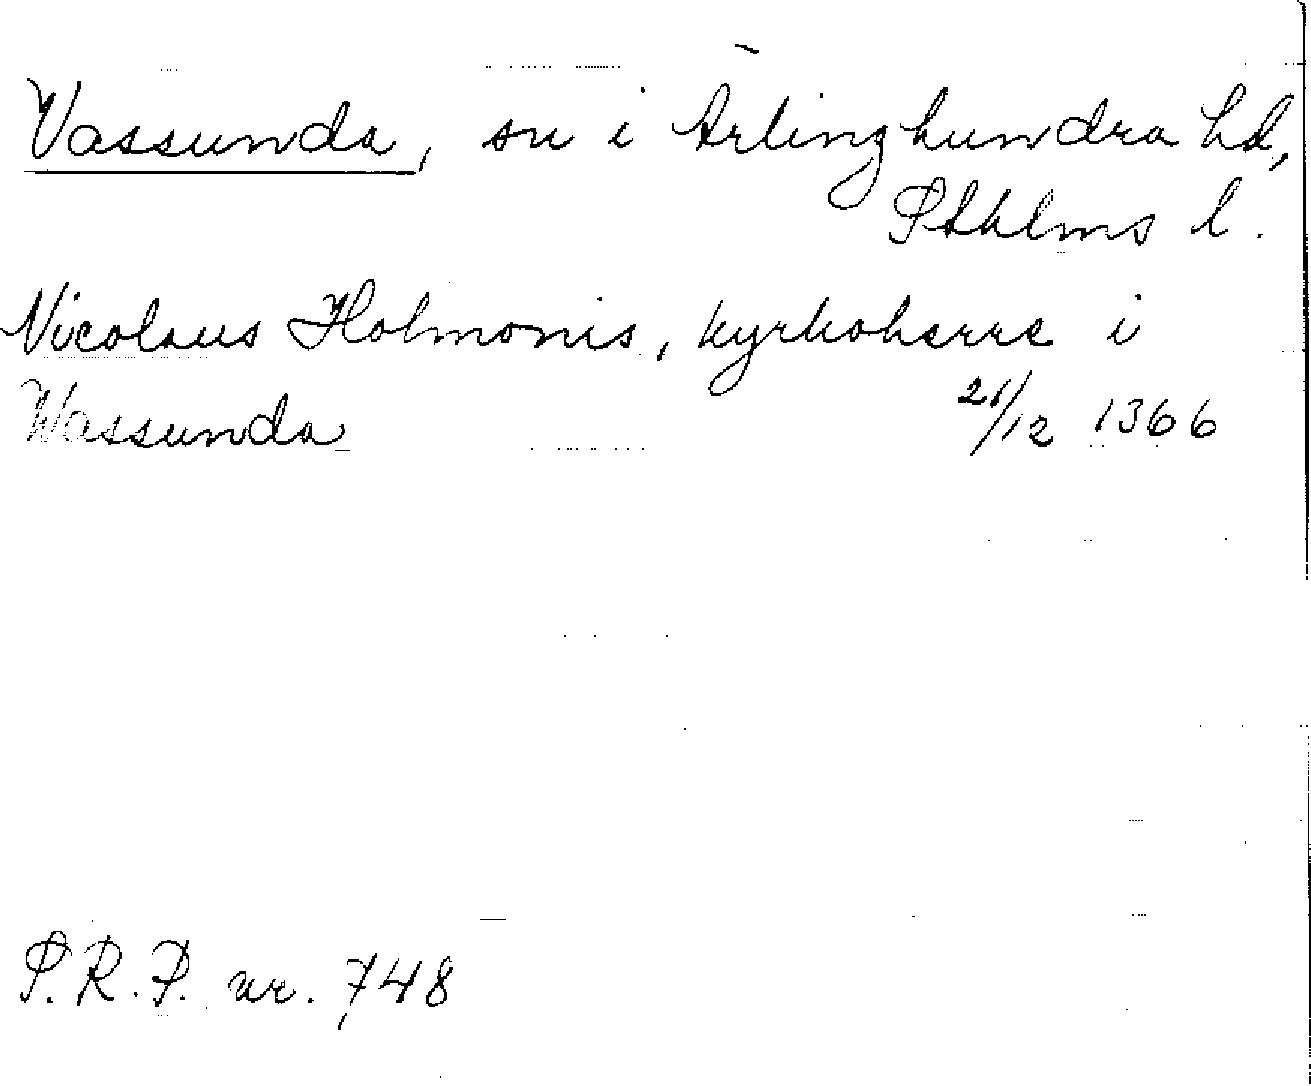 Vassunda, sn i Ärlinghundra hd,
Sthlms l.
Nicolaus Holmonis, kyrkoherre i
Wassunda 21/12 1366
S.R.P. nr. 748